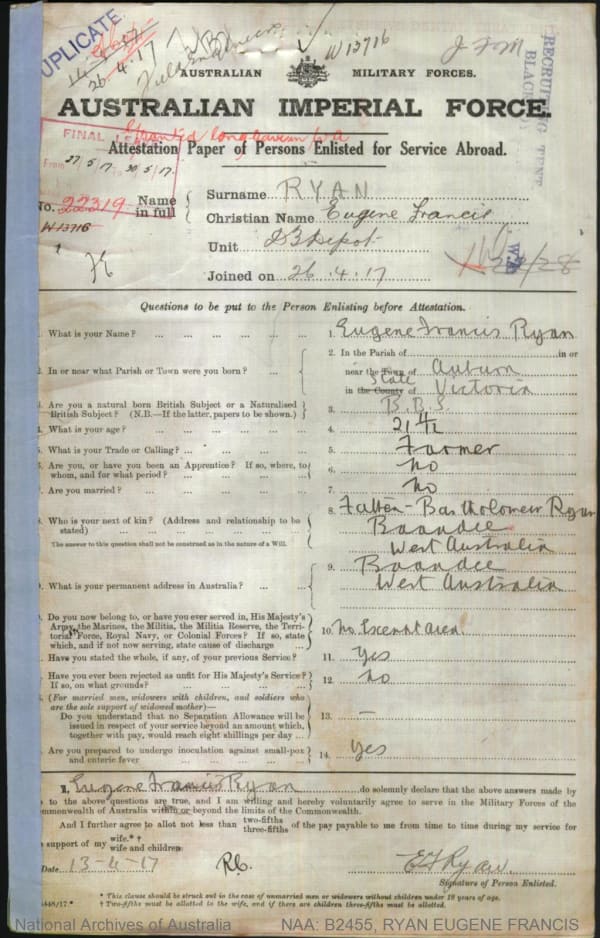 DUPLICATE
26.4.17
W13716
J F M
RECRUITING TENT
AUSTRALIAN MILITARY FORCES.
AUSTRALIAN IMPERIAL FORCE.
FINAL
Attestation Paper of Persons Enlisted for Service Abroad.
From 27/5/17 to 30/5/17.
No. 22319
W13716
Name in full
Surname RYAN
Christian Name Eugene Francis
Unit Depot
Joined on 26.4.17
Questions to be put to the Person Enlisting before Attestation.
What is your Name? ... 1. Eugene Francis Ryan
In or near what Parish or Town were you born? ... 2. In the Parish of in or
near the Town of Auburn
in the County of State Victoria
Are you a natural born British Subject or a Naturalised British Subject? (N.B.—If the latter, papers to be shown.) 3. B.B.S.
What is your age? ... 4. 21 4/12
What is your Trade or Calling? ... 5. Farmer
Are you, or have you been an Apprentice? If so, where, to whom, and for what period? ... 6. no
Are you married? ... 7. no
Who is your next of kin? (Address and relationship to be stated) ... 8. Father- Bartholomew Ryan
Baandee
West Australia
The answer to this question shall not be construed as in the nature of a Will.
What is your permanent address in Australia? ... 9. Baandee
West Australia
Do you now belong to, or have you ever served in, His Majesty's
Army, the Marines, the Militia, the Militia Reserve, the Territorial Force, Royal Navy, or Colonial Forces? If so, state
which, and if not now serving, state cause of discharge ... 10. No. Exempt area.
Have you stated the whole, if any, of your previous Service? 11. Yes
Have you ever been rejected as unfit for His Majesty's Service?
If so, on what grounds? ... 12. No
(For married men, widowers with children, and soldiers who
are the sole support of widowed mother)—
Do you understand that no Separation Allowance will be
issued in respect of your service beyond an amount which,
together with pay, would reach eight shillings per day ... 13. —
Are you prepared to undergo inoculation against small-pox
and enteric fever ... 14. Yes
I, Eugene Francis Ryan do solemnly declare that the above answers made by
to the above questions are true, and I am willing and hereby voluntarily agree to serve in the Military Forces of the
Commonwealth of Australia within or beyond the limits of the Commonwealth.
And I further agree to allot not less than two-fifths three-fifths of the pay payable to me from time to time during my service for
support of my wife.* † wife and children.
Date 13-4-17 E F Ryan.
Signature of Person Enlisted.
* This clause should be struck out in the case of unmarried men or widowers without children under 18 years of age.
† Two-fifths must be allotted to the wife, and if there are children three-fifths must be allotted.
National Archives of Australia NAA: B2455, RYAN EUGENE FRANCIS